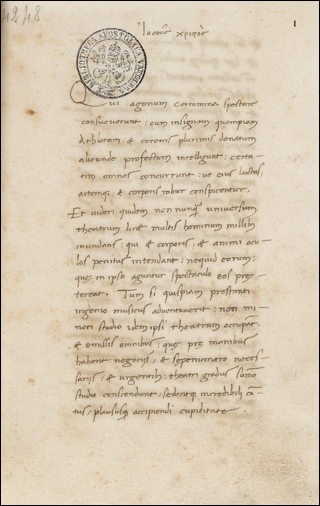 4248
Ιησους χριστὸς
BIBLIOTHECA APOSTOLICA VATICANA
Qui agonum certamina spectare
consueverunt: cum insignem quempiam
Athletam, & coronis plurimis donatum
aliunde profectum intelligunt: certa-
tim omnes concurrunt: ut eius luctas,
artemq; & corporis robur conspicentur.
Et videri quidem non nunq; universum
theatrum licet multis hominum millib;
inundans: qui & corporis, & animi ocu-
los penitus intendant: nequid eorum:
que in ipso aguntur spectaculo eos pre-
tereat. Tum si quispiam prestanti
ingenio musicus adventaverit: non mi-
nori studio idem ipsi theatrum occupat.
& omissis omnibus: que pre manibus
habent negocijs, & sepenumero neces-
sarijs, & urgentib; theatri gradus summo
studio conscendunt: sedentq; incredibili can-
tus, plaususq; accipiendi cupiditate.